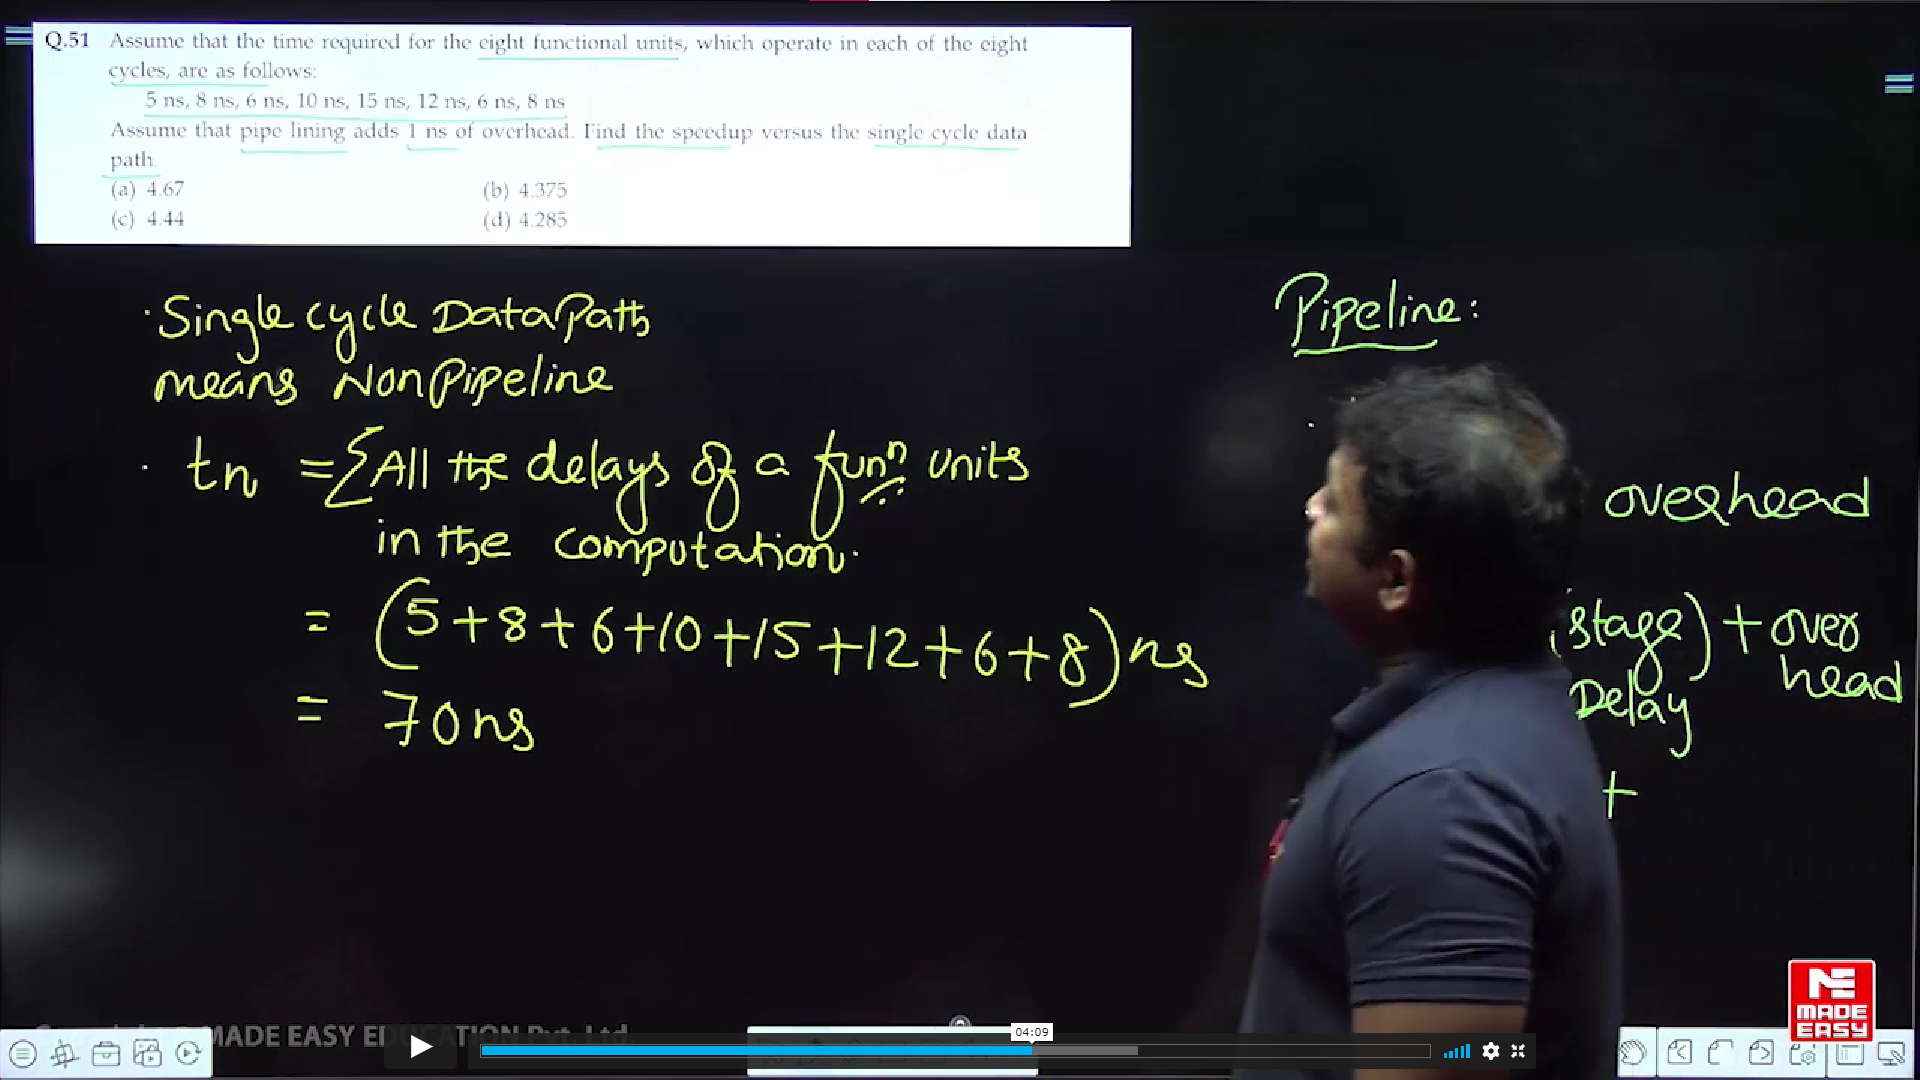 Q.51 Assume that the time required for the eight functional units, which operate in each of the eight
cycles, are as follows:
5 ns, 8 ns, 6 ns, 10 ns, 15 ns, 12 ns, 6 ns, 8 ns
Assume that pipe lining adds 1 ns of overhead. Find the speedup versus the single cycle data
path.
(a) 4.67 (b) 4.375
(c) 4.44 (d) 4.285
· Single cycle DataPath
means NonPipeline
· tn = ∑ All the delays of a funⁿ units
in the computation.
= (5+8+6+10+15+12+6+8) ns
= 70 ns
Pipeline:
overhead
(stage) + over
Delay head
+
MADE EASY EDUCATION Pvt. Ltd.
04:09
MADE
EASY